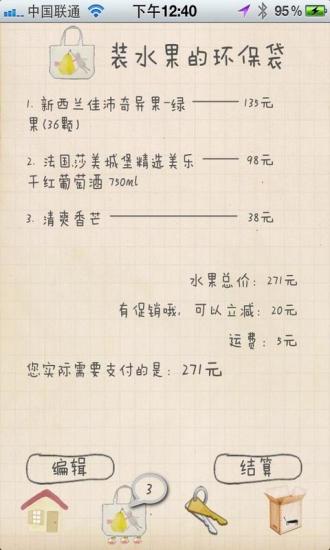 中国联通 下午12:40 95%
装水果的环保袋
1. 新西兰佳沛奇异果-绿 135元
果(36颗)
2. 法国.莎美城堡精选美乐 98元
干红葡萄酒 750ml
3. 清爽香芒 38元
水果总价: 271元
有促销哦, 可以立减: 20元
运费: 5元
您实际需要支付的是: 271元
编辑 结算
3